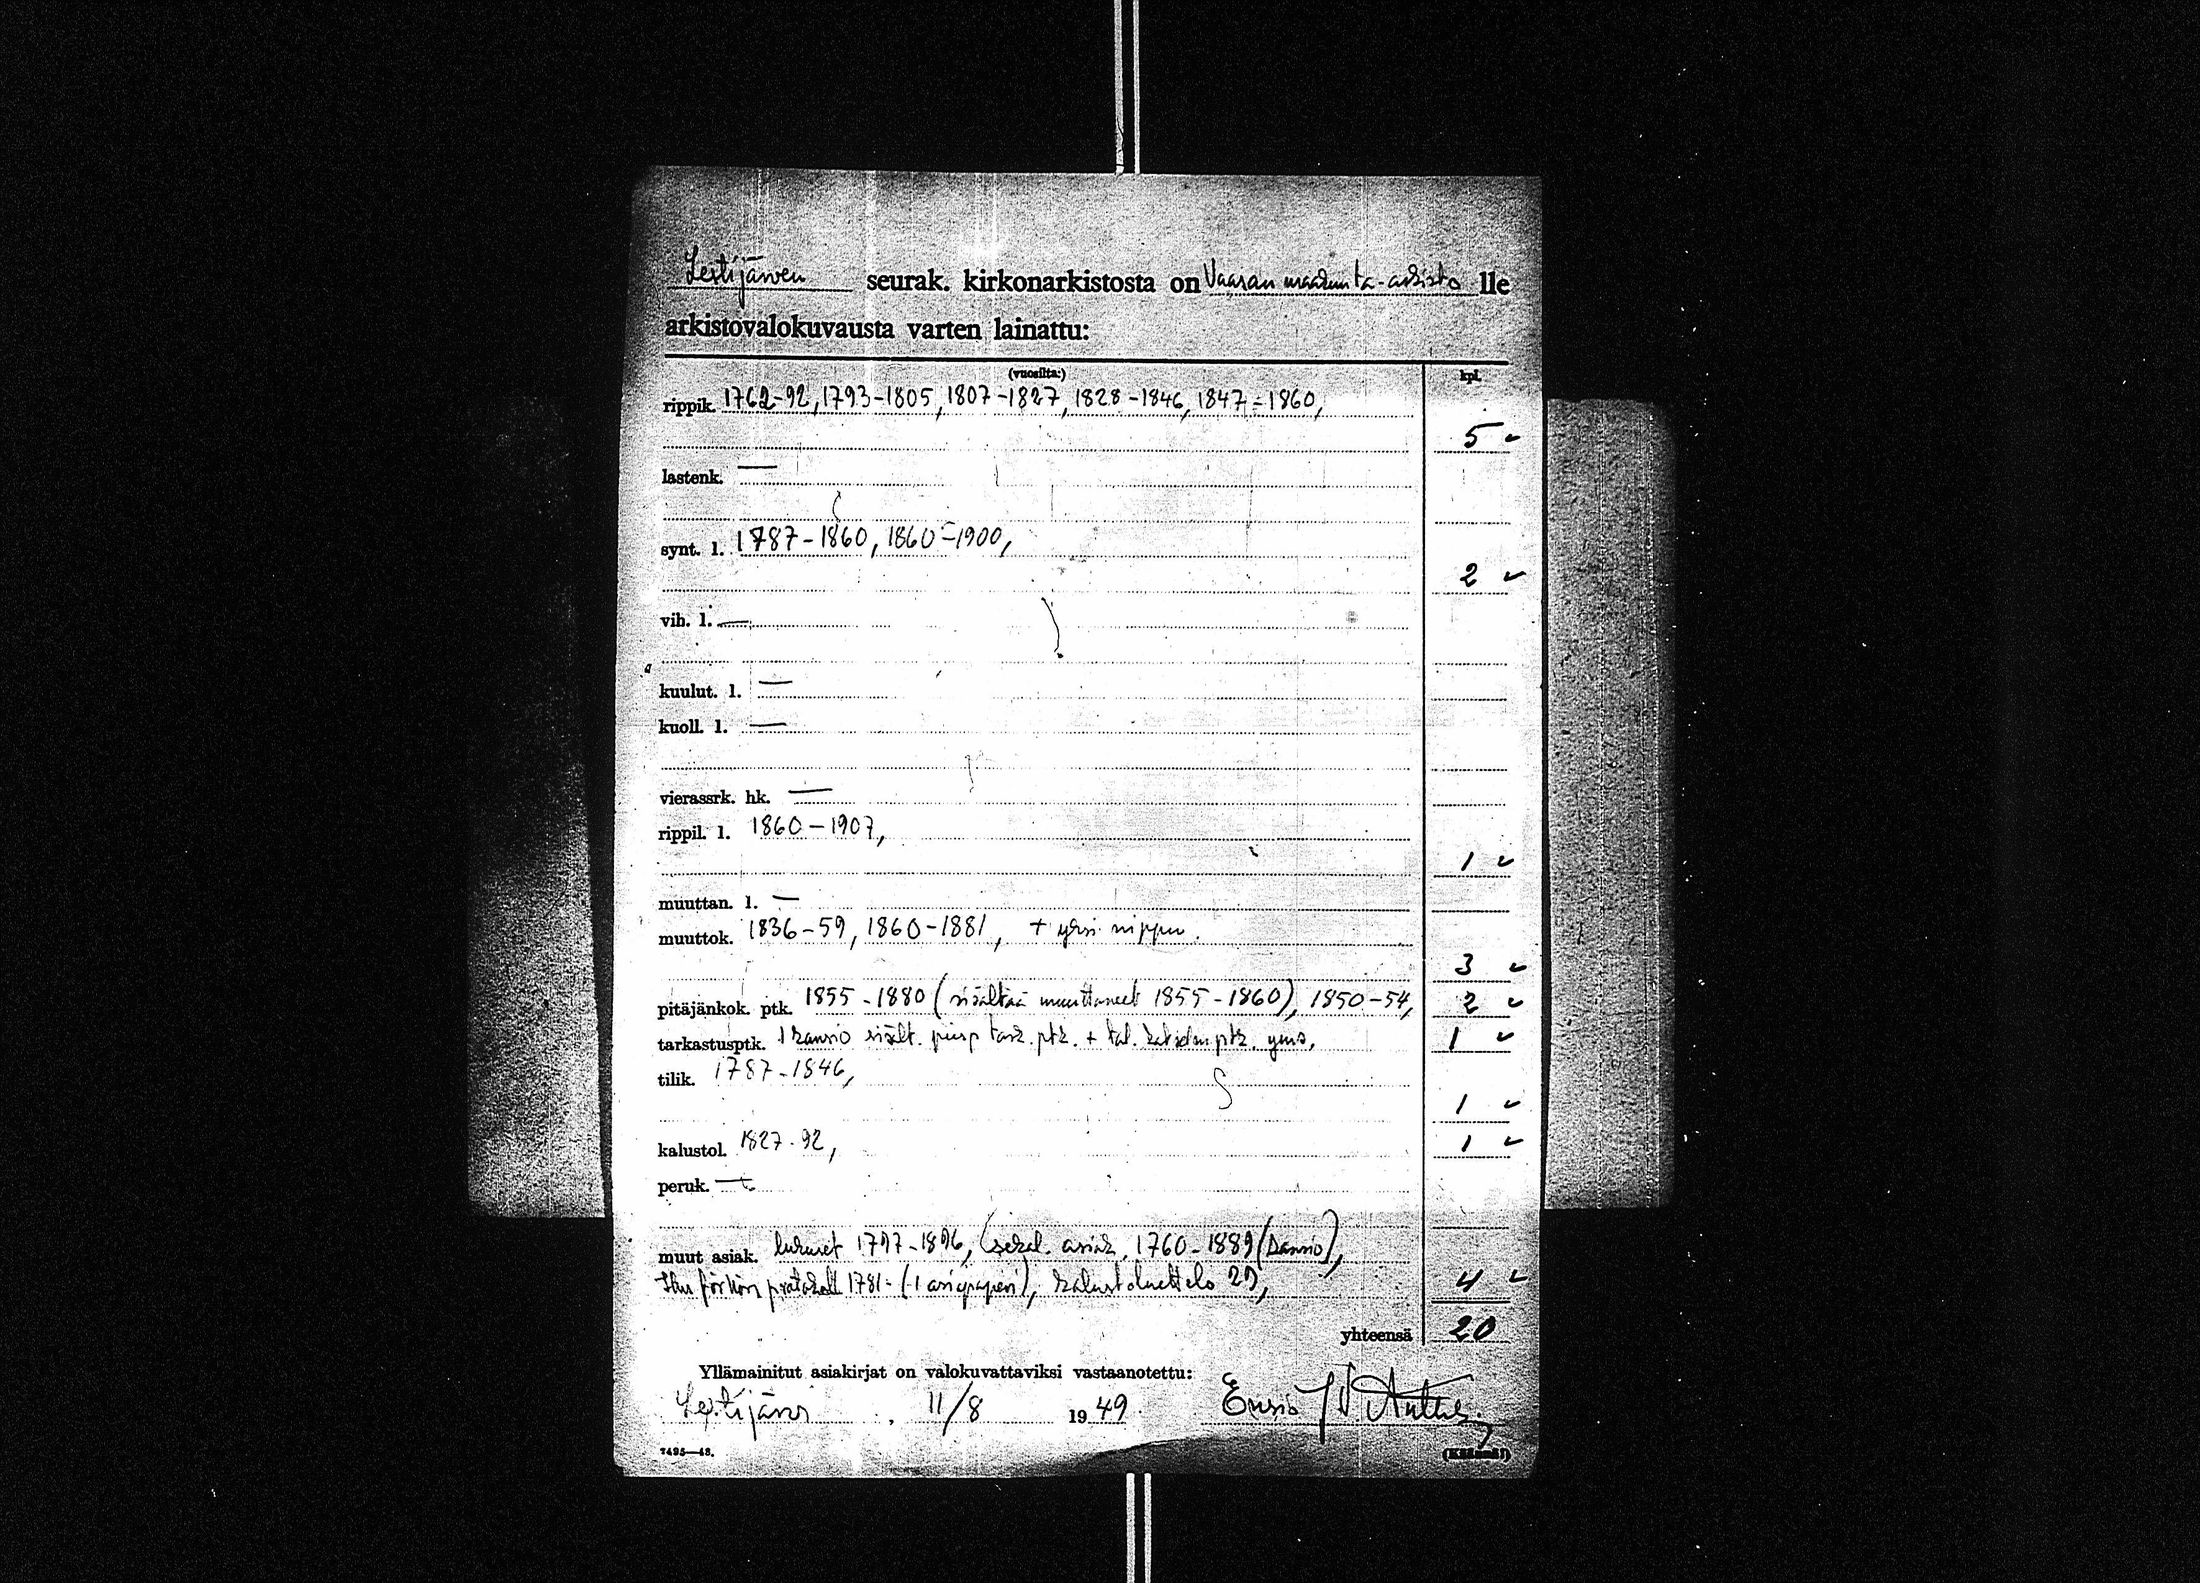 Lestijärven seurak. kirkonarkistosta on Vaasan maakunta-arkisto lle
arkistovalokuvausta varten lainattu:
(vuosilta:) kpl.
rippik. 1762-92, 1793-1805, 1807-1827, 1828-1846, 1847-1860,
5 ✓
lastenk. —
synt. l. 1787-1860, 1860-1900,
2 ✓
vih. l. —
kuulut. l. —
kuoll. l. —
vierassrk. hk. —
rippil. l. 1860-1907,
1 ✓
muuttan. l. —
muuttok. 1836-59, 1860-1881, + yksi nippu.
3 ✓
pitäjänkok. ptk. 1855-1880 (sisältää muuttaneet 1855-1860), 1850-54, 2 ✓
tarkastusptk. 1 kansio sisält. piisp tark. ptk. + tal. katselm ptk. yms. 1 ✓
tilik. 1787-1846,
1 ✓
kalustol. 1827-92, 1 ✓
peruk. —
muut asiak. lukuset 1797-1896, (sekal. asiak. 1760-1889 (kansio),
förhörs protokoll 1781- (1 arvopaperi), kalustoluettelo 4 ✓
yhteensä 20
Yllämainitut asiakirjat on valokuvattaviksi vastaanotettu:
Lestijärvi, 11/8 1949 Ensio
7495—48. (Käännä!)